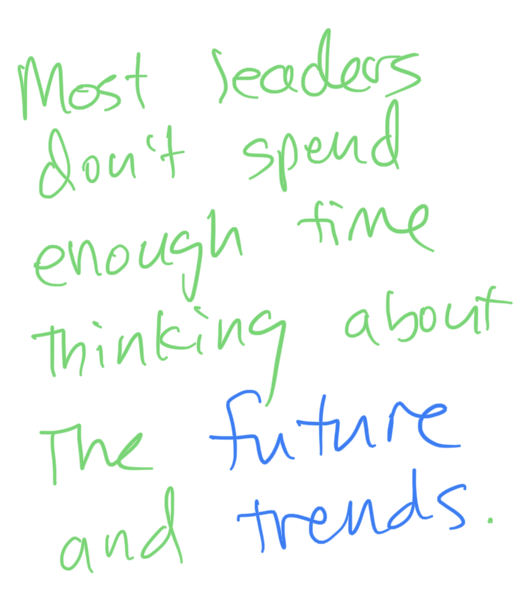 Most leaders
don't spend
enough time
thinking about
The future
and trends.